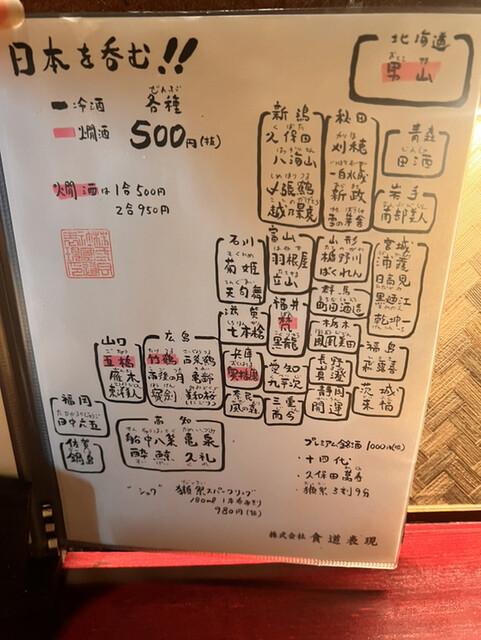 日本を呑む!!
冷酒 各種
燗酒 500円(税)
燗酒は1合500円
2合950円
北海道
男山
青森
田酒
秋田
刈穂
一白水成
新政
雪の茅舎
岩手
南部美人
新潟
久保田
八海山
〆張鶴
越乃景虎
宮城
浦霞
日高見
墨廼江
乾坤一
山形
楯野川
ばくれん
富山
羽根屋
立山
石川
菊姫
天狗舞
群馬
町田酒造
福井
梵
黒龍
滋賀
七本槍
栃木
鳳凰美田
福島
長野
静岡
開運
茨城
来福
愛知
九平次
三重
而今
兵庫
奥播磨
奈良
風の森
広島
竹鶴
西條鶴
雨後の月
亀齢
賀茂
寳剣
美和桜
山口
五橋
雁木
東洋美人
福岡
田中六五
佐賀
鍋島
高知
船中八策
亀泉
酔鯨
久礼
プレミアム銘酒 1000円(税)
・十四代
・久保田萬寿
・獺祭 3割9分
獺祭スパークリング
180ml 1本売り
980円(税)
株式会社 食道表現